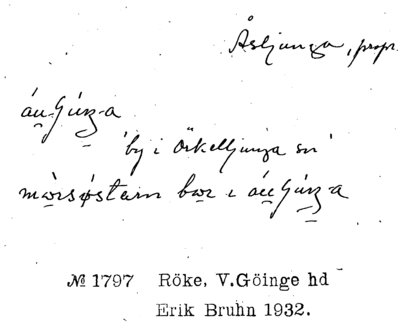 Åsljunga, propr.
áu̠-Gúŋ-a
'by i Örkelljunga sn'
mòrsøstarn bor i áu̠Gúŋ-a
№ 1797 Röke, V.Göinge hd
Erik Bruhn 1932.